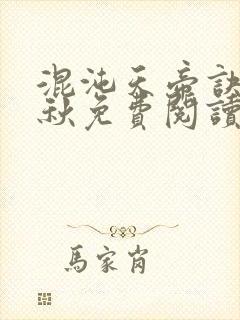 混沌天帝訣
秋免費閱讀
馬家肖